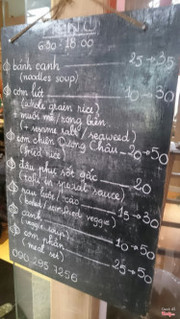 MENU
6:30 - 18:00
bánh canh 25→35
(noodles soup)
cơm lứt 10→30
(whole grain rice)
+ muối mè/rong biển
(+ sesame salt / seaweed)
cơm chiên Dương Châu 20→50
(fried rice)
đậu phụ sốt gấc 20
(tofu in special sauce)
rau luộc/xào 15→30
(boiled/ veggie)
canh 10→50
(veggie soup)
cơm phần 25→50
(meal set)